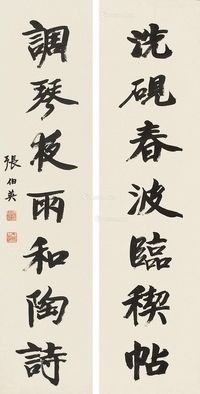 洗硯春波臨稧帖
調琴夜雨和陶詩
張伯英